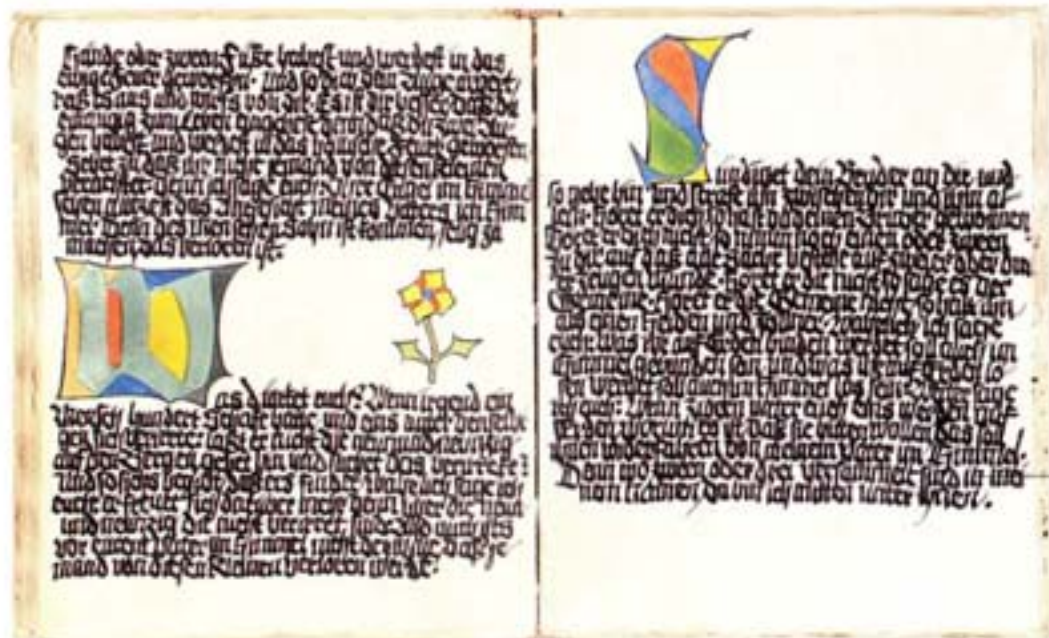 Hände oder zween Füße habest und werdest in das
ewige Feuer geworfen. Und so dich dein Auge ärgert,
reiß es aus und wirfs von dir. Es ist dir besser, daß du
einäugig zum Leben eingehest, denn daß du zwei Au-
gen habest und werdest in das höllische Feuer geworfen.
Sehet zu, daß ihr nicht jemand von diesen Kleinen
verachtet. Denn ich sage euch: Ihre Engel im Himmel
sehen allezeit das Angesicht meines Vaters im Him-
mel. Denn des Menschen Sohn ist kommen, selig zu
machen, das verloren ist.
Was dünket euch? Wenn irgend ein
Mensch hundert Schafe hätte und eins unter densel-
ben sich verirrete: läßt er nicht die neunundneunzig
auf den Bergen, gehet hin und suchet das verirrete?
Und so sichs begibt, daß ers findet, wahrlich ich sage
euch, er freuet sich darüber mehr denn über die neun
undneunzig, die nicht verirret sind. Also auch ists
vor eurem Vater im Himmel nicht der Wille, daß je
mand von diesen Kleinen verloren werde.
Sündiget dein Bruder an dir, und
so gehe hin und strafe ihn zwischen dir und ihm al
lein. Höret er dich, so hast du deinen Bruder gewonnen.
Höret er dich nicht, so nimm noch einen oder zween
zu dir, auf daß alle Sache bestehe auf zweier oder drei
er Zeugen Munde. Höret er die nicht, so sage es der
Gemeine. Höret er die Gemeine nicht, so halt ihn
als einen Heiden und Zöllner. Wahrlich ich sage
euch: Was ihr auf Erden binden werdet, soll auch im
Himmel gebunden sein, und was ihr auf Erden lö
sen werdet, soll auch im Himmel los sein. Weiter sage
ich euch: Wenn zween unter euch eins werden auf
Erden, warum es ist, daß sie bitten wollen, das soll
ihnen widerfahren von meinem Vater im Himmel.
Denn wo zween oder drei versammelt sind in mei
nem Namen, da bin ich mitten unter ihnen.